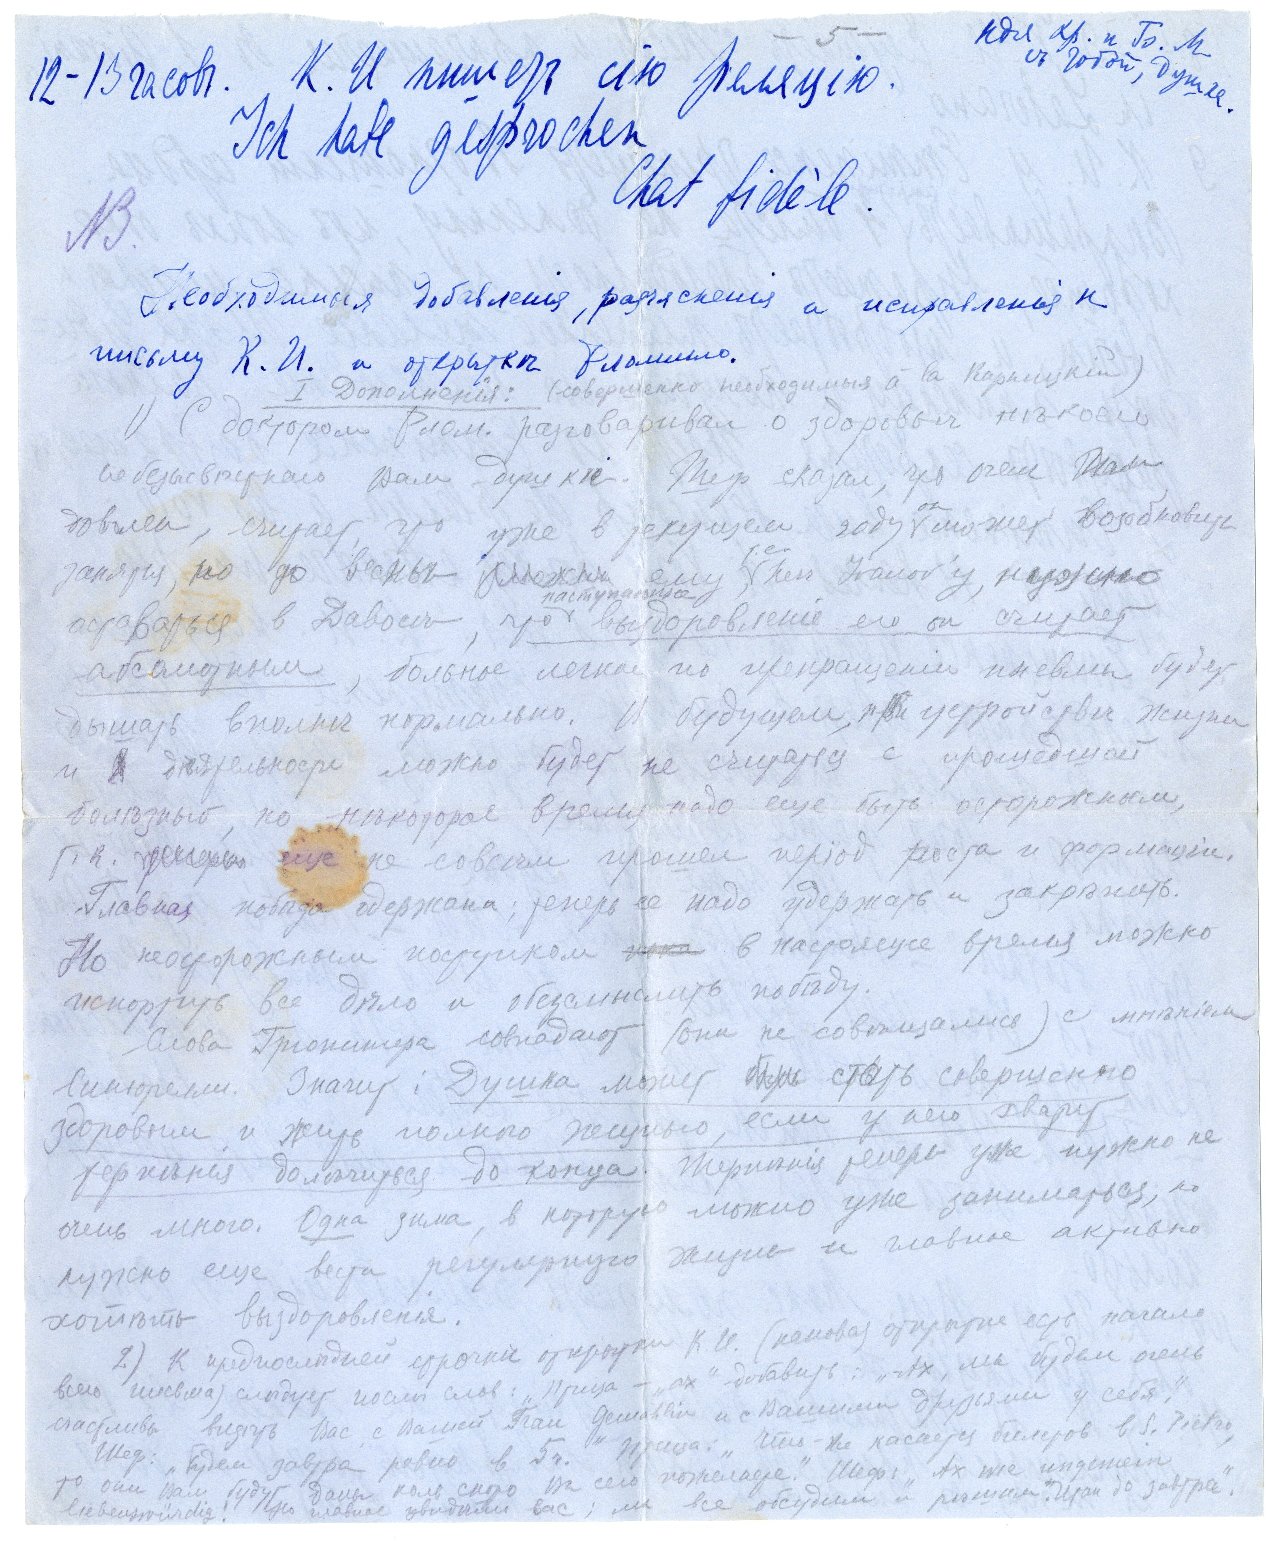 — 5 —
для Хр. и Бо. М
съ тобой, Душка.
12–13 часовъ. К. И пишетъ сію реляцію.
Ich habe gesprochen
Chat fidèle.
NB.
Необходимыя добавленія, разъясненія и исправленія к
письму К. И. и открыткѣ Фломино.
I Дополненія: (совершенно необходимыя à la Карницкій)
1) С доктором разговаривал о здоровьи нѣкоего
небезызвѣстнаго Вам Душки. Шеф сказал, что очен Вам
доволен, считает, что уже в текущем году он может возобновить
занятія, но до весны ему, нужно
наступающее
оставаться в Давосѣ, что выздоровленіе его он считает
абсолютным, больное легкое по прекращеніи пневмы будет
дышать вполнѣ нормально. В будущем, при устройствѣ жизни
и дѣятельности можно будет не считаться с прошедшей
болѣзнью, но нѣкоторое время надо еще быть осторожным,
т. к. теперь еще не совсѣм прошел період роста и формаціи.
Главная побѣда одержана; теперь ее надо удержать и закрѣпить.
Но неосторожным поступком в настоящее время можно
испортить все дѣло и обезсмыслить побѣду.
Слова совпадают (они не совѣщались) с мнѣніем
Значит: Душка может стать совершенно
здоровым и жить полною жизнью, если у него хватит
терпѣнія долѣчиться до конца. Терпѣнія теперь уже нужно не
очень много. Одна зима, в которую можно уже заниматься, но
нужно еще вести регулярную жизнь и главное активно
хотѣть выздоровленія.
2) К предпослѣдней строчкѣ открытки К И. (каковая открытка есть начало
всего письма) слѣдует послѣ слов: „Прица – „ах" добавить: „Ах, мы будем очень
счастливы видѣть Вас с Вашей и с Вашими друзьями у себя".
Шеф: „Будем завтра ровно в 5 ч." Прица: „Что-же касается билетов в S. Pietro,
то они Вам будут даны коль скоро Вы сего пожелаете." Шеф: „Ах же
liebenswürdig! Но главное увидим вас; мы все обсудим и рѣшим. Итак до завтра".